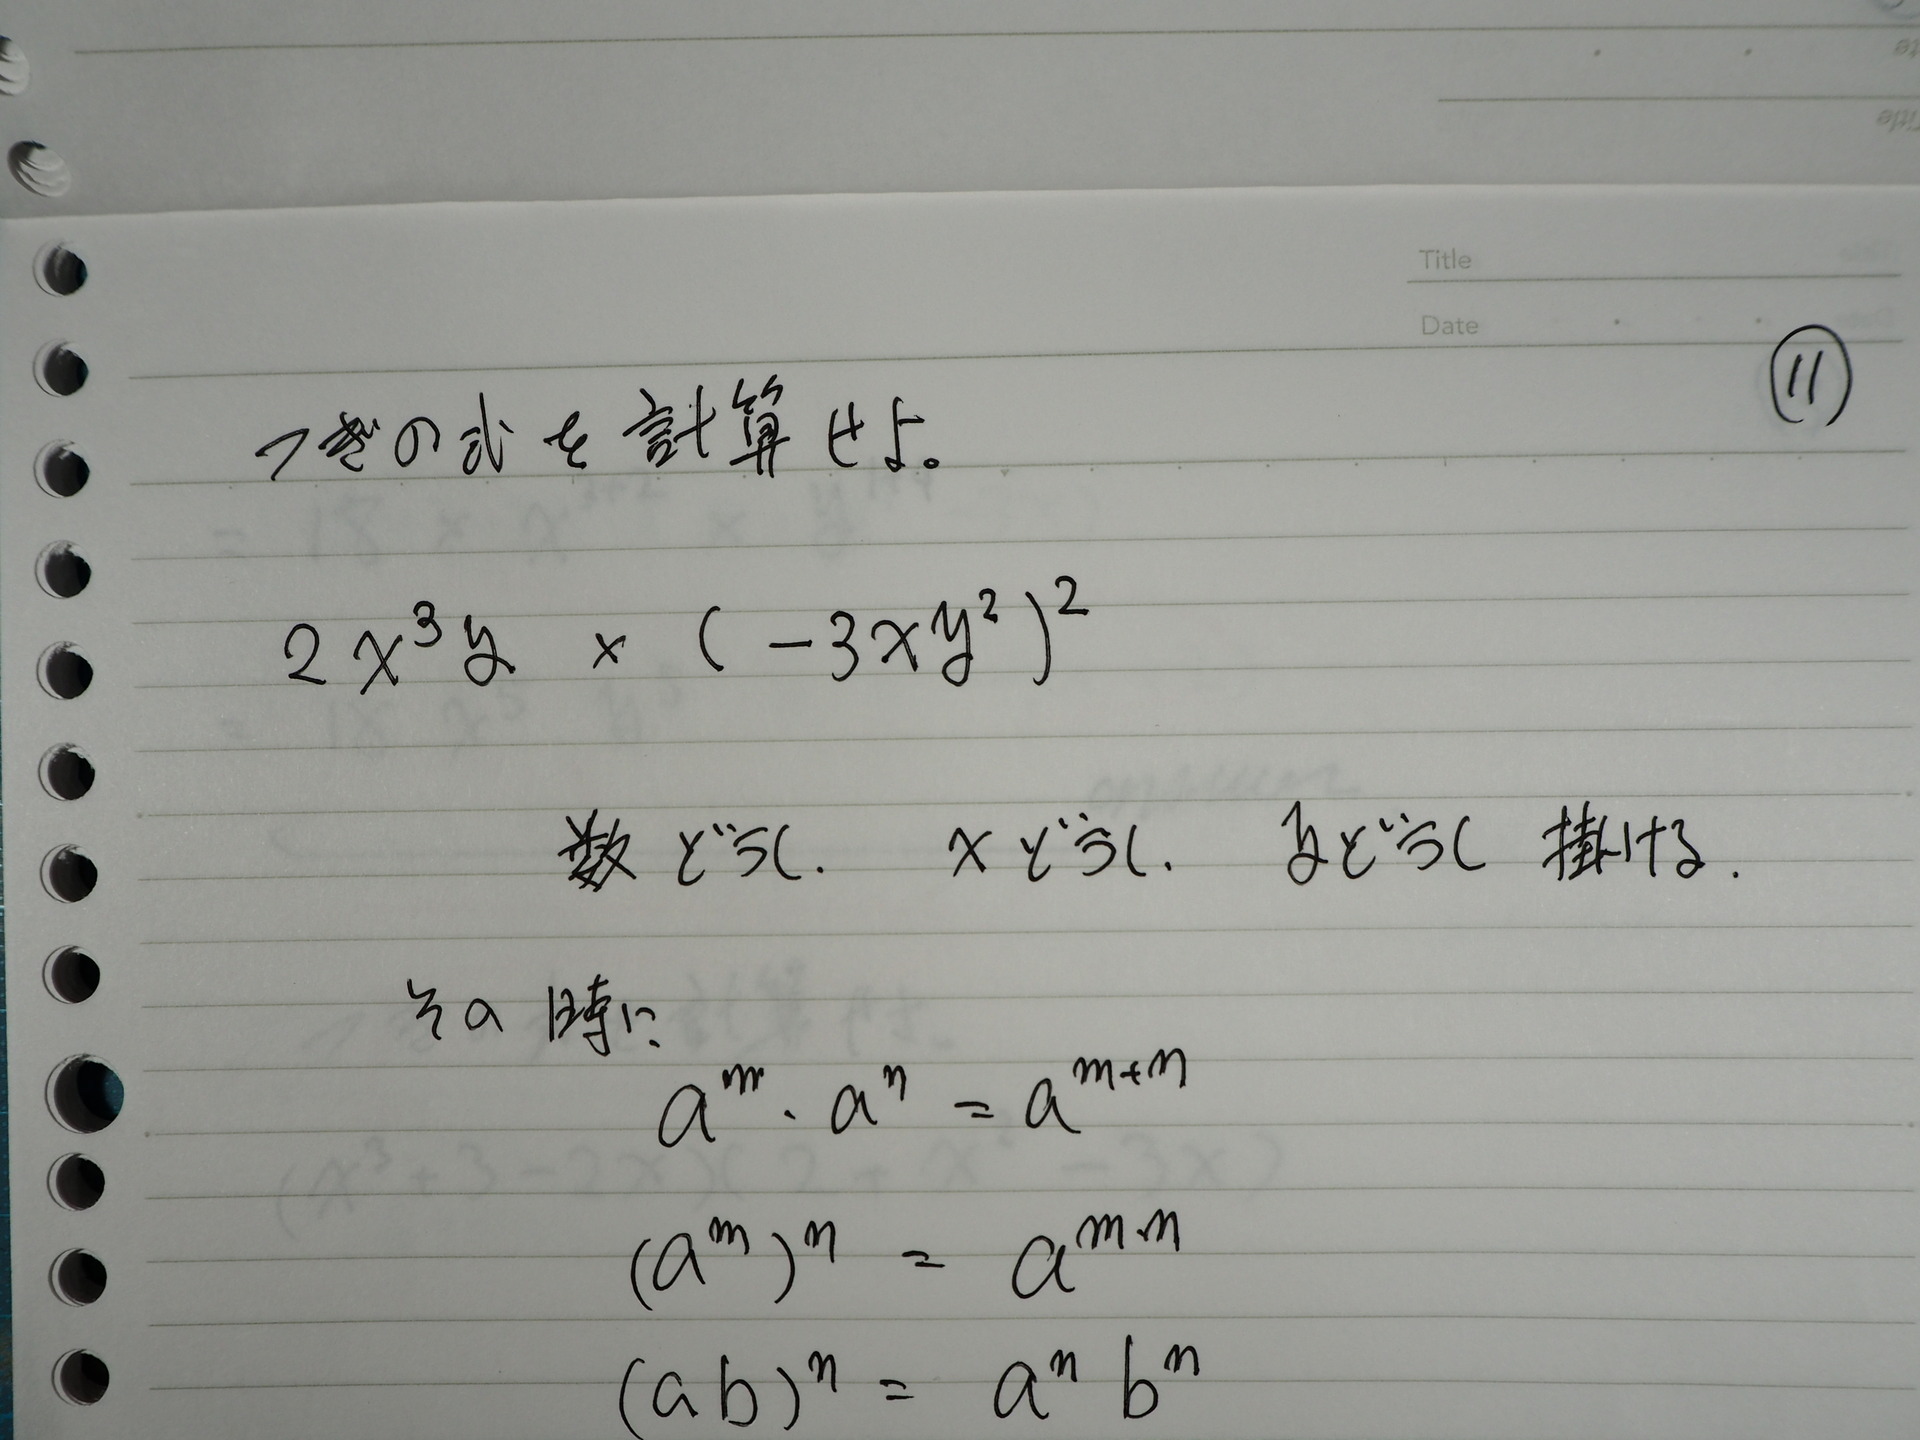 Title
Date
⑪
つぎの式を計算せよ。
2x³y × (-3xy²)²
数どうし. xどうし. yどうし 掛ける.
その時に
aᵐ・aⁿ = aᵐ⁺ⁿ
(aᵐ)ⁿ = aᵐ·ⁿ
(ab)ⁿ = aⁿ bⁿ